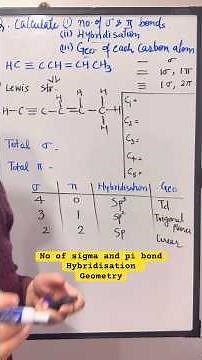 Q. Calculate (i) no. of σ & π bonds
(ii) Hybridisation
(iii) Geo of each Carbon atom
HC≡CCH=CHCH₃
— σ
= 1σ, 1π
≡ 1σ, 2π
Lewis str.
H H H
H-C≡C-C=C-C-H
H
C₁ =
C₂ =
C₃ =
C₄ =
C₅ =
Total σ -
Total π -
σ π Hybridisation Geo
4 0 Sp³ Td
3 1 Sp² Trigonal planar
2 2 Sp Linear
No of sigma and pi bond
Hybridisation
Geometry